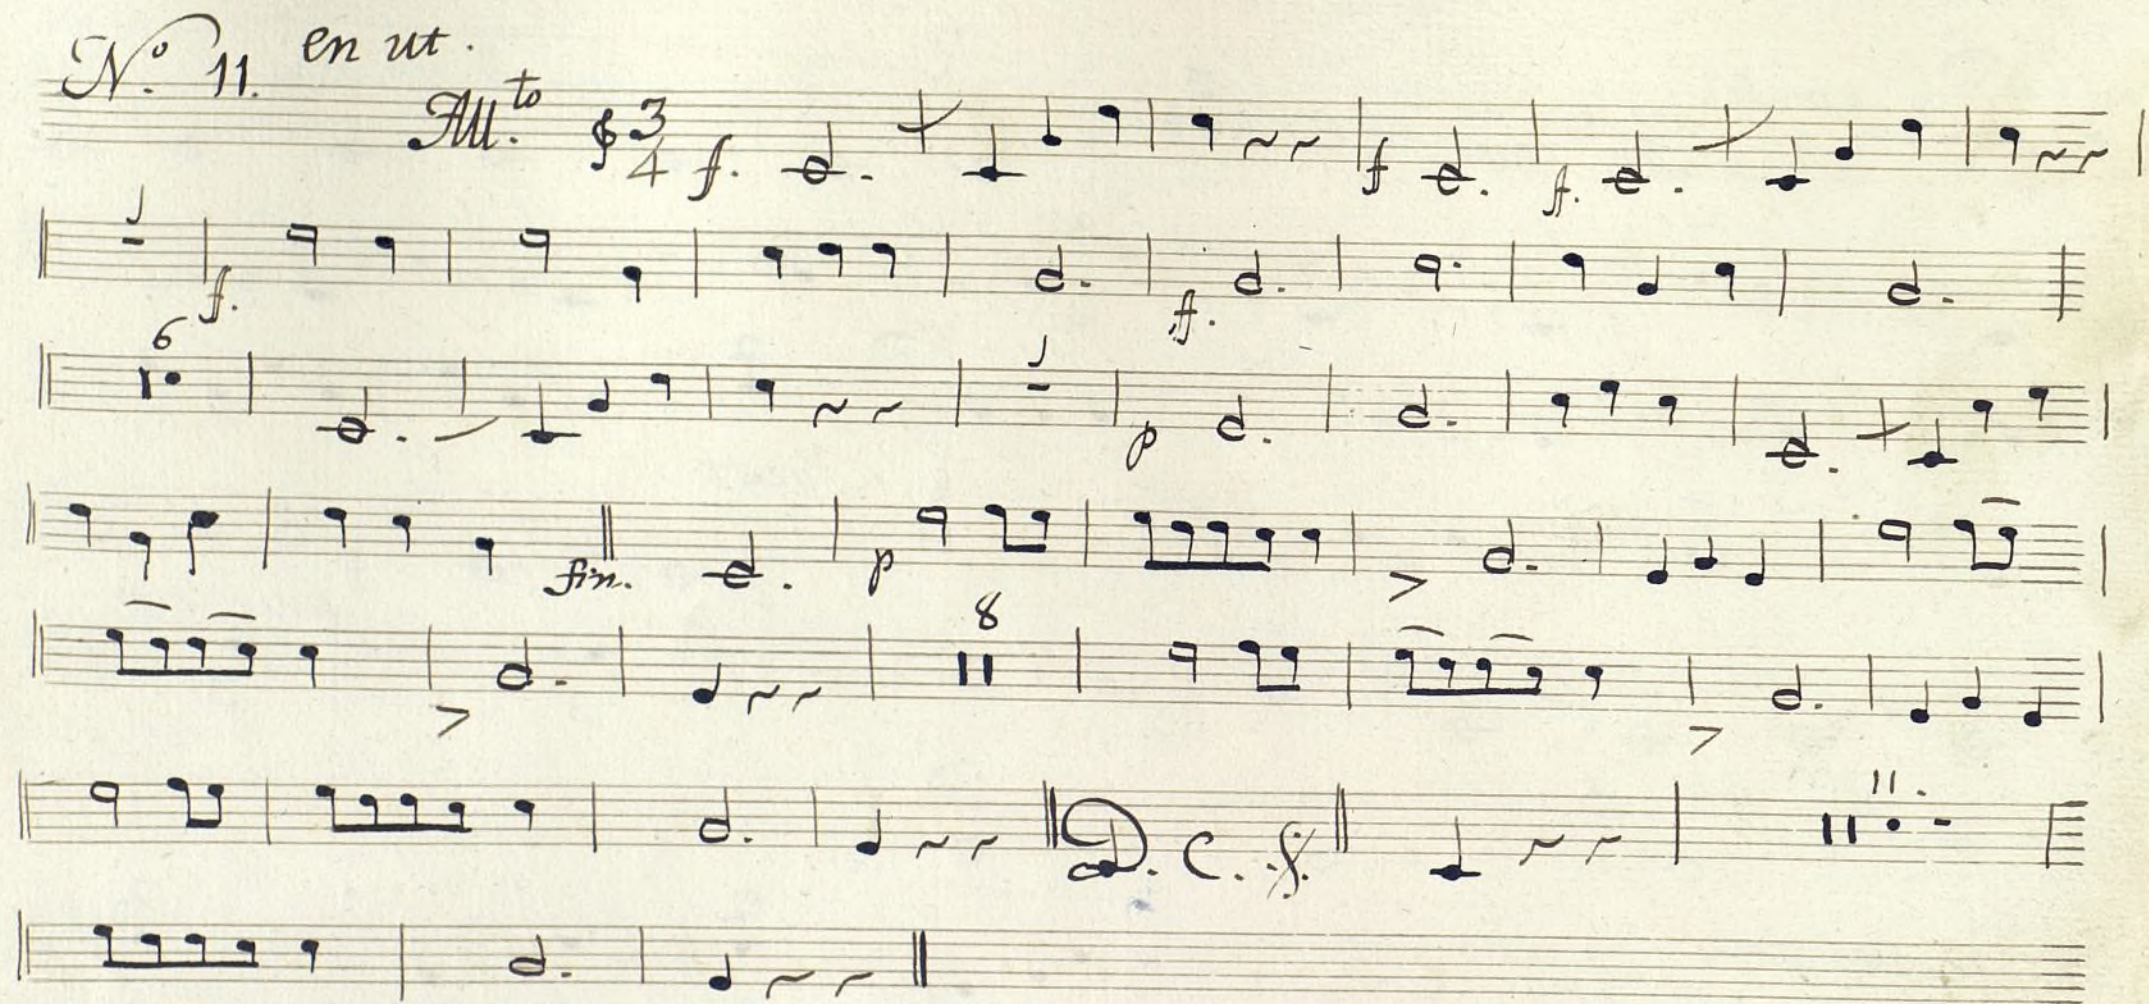 Nº. 11. en ut.
All.to 3/4 f. f f.
f. f.
6 p
fin. p
8
D. C. 11.